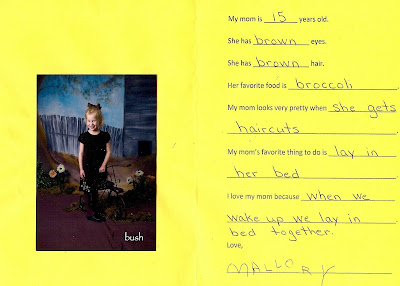 My mom is 15 years old.
She has brown eyes.
She has brown hair.
Her favorite food is broccoli.
My mom looks very pretty when she gets
haircuts.
My mom's favorite thing to do is lay in
her bed.
I love my mom because when we
wake up we lay in
bed together.
Love,
MALLORY
bush